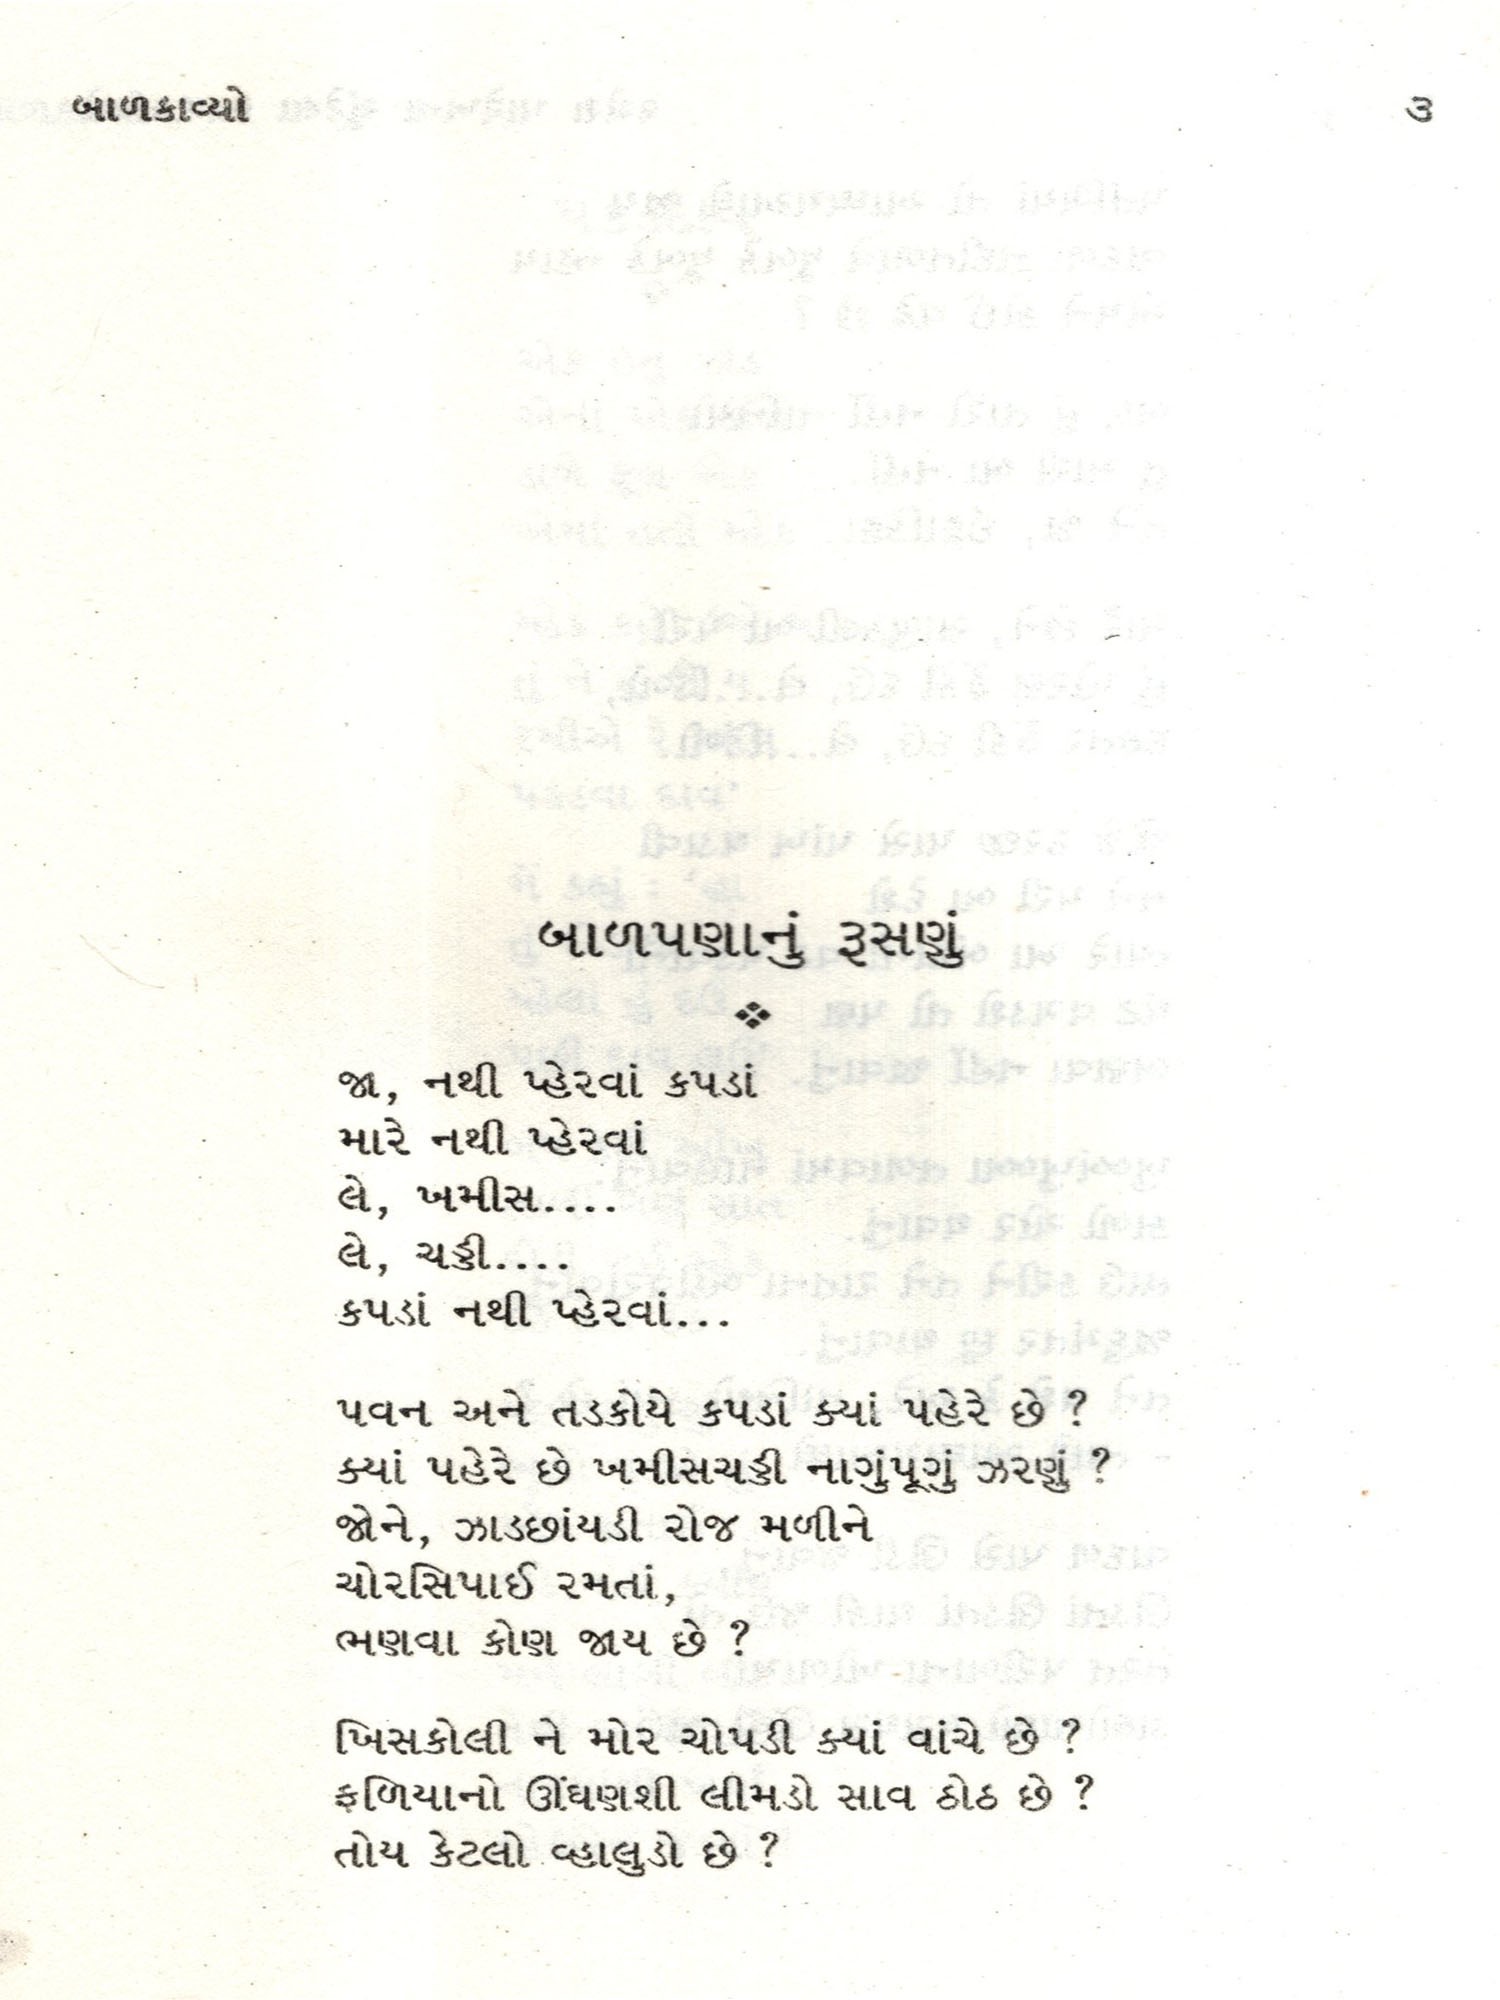 બાળકાવ્યો ૩
બાળપણાનું રૂસણું
જા, નથી પ્હેરવાં કપડાં
મારે નથી પ્હેરવાં
લે, ખમીસ....
લે, ચડ્ડી....
કપડાં નથી પ્હેરવાં...
પવન અને તડકોયે કપડાં ક્યાં પહેરે છે ?
ક્યાં પહેરે છે ખમીસચડ્ડી નાગુંપૂગું ઝરણું ?
જોને, ઝાડછાંયડી રોજ મળીને
ચોરસિપાઈ રમતાં,
ભણવા કોણ જાય છે ?
ખિસકોલી ને મોર ચોપડી ક્યાં વાંચે છે ?
ફળિયાનો ઊંઘણશી લીમડો સાવ ઠોઠ છે ?
તોય કેટલો વ્હાલુડો છે ?